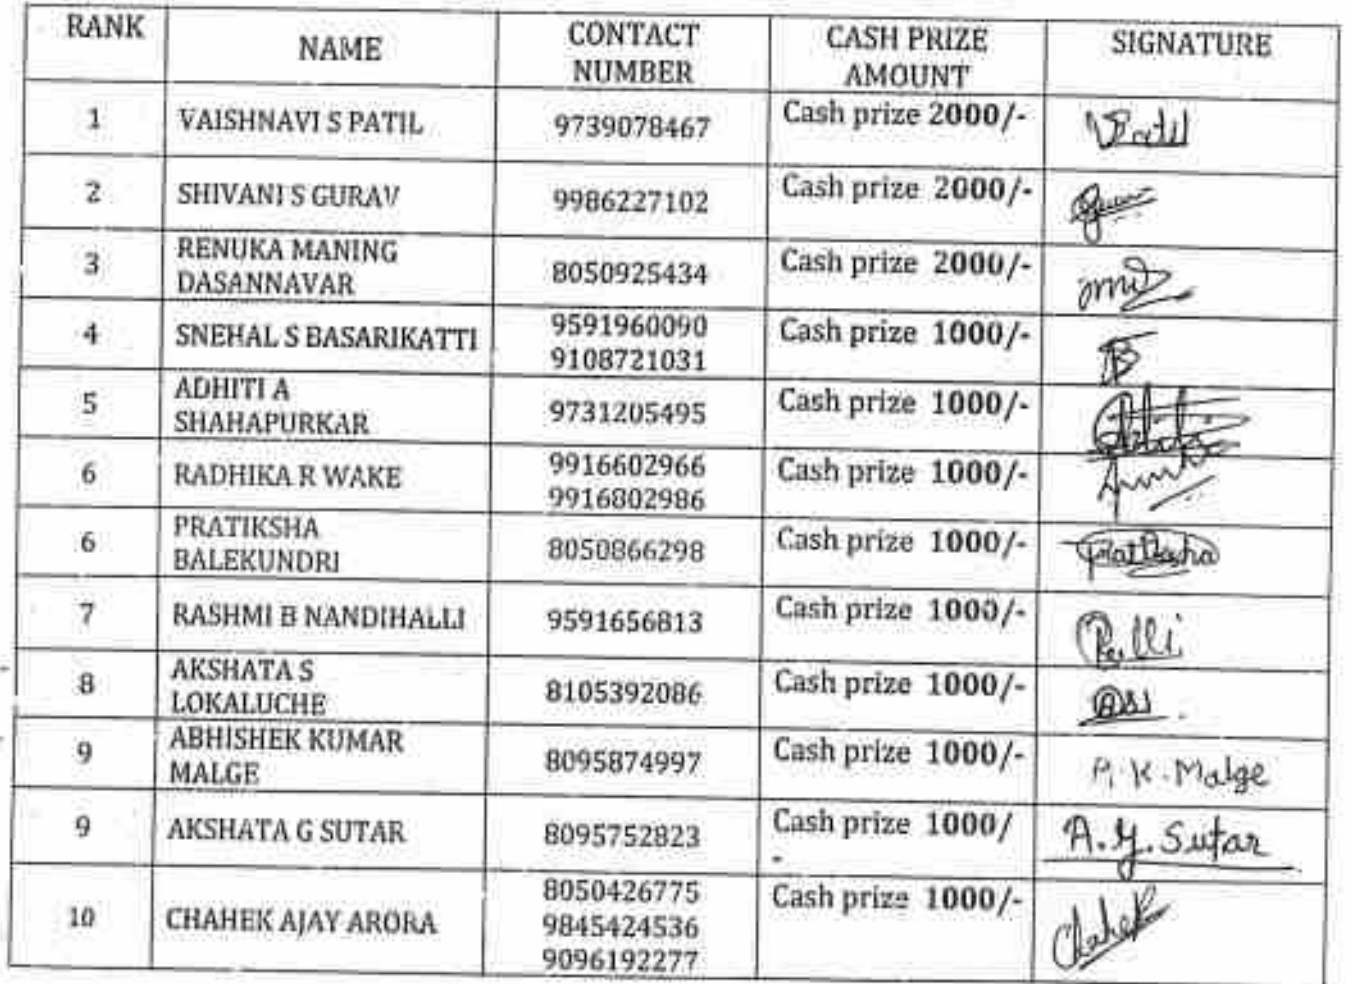 RANK
NAME
CONTACT
NUMBER
CASH PRIZE
AMOUNT
SIGNATURE
1
VAISHNAVI S PATIL
9739078467
Cash prize 2000/-
VPatil
2
SHIVANI S GURAV
9986227102
Cash prize 2000/-
3
RENUKA MANING
DASANNAVAR
8050925434
Cash prize 2000/-
4
SNEHAL S BASARIKATTI
9591960090
9108721031
Cash prize 1000/-
5
ADHITI A
SHAHAPURKAR
9731205495
Cash prize 1000/-
6
RADHIKA R WAKE
9916602966
9916802986
Cash prize 1000/-
6
PRATIKSHA
BALEKUNDRI
8050866298
Cash prize 1000/-
7
RASHMI B NANDIHALLI
9591656813
Cash prize 1000/-
8
AKSHATA S
LOKALUCHE
8105392086
Cash prize 1000/-
9
ABHISHEK KUMAR
MALGE
8095874997
Cash prize 1000/-
A. K. Malge
9
AKSHATA G SUTAR
8095752823
Cash prize 1000/
-
A. G. Sutar
10
CHAHEK AJAY ARORA
8050426775
9845424536
9096192277
Cash prize 1000/-
Chahek